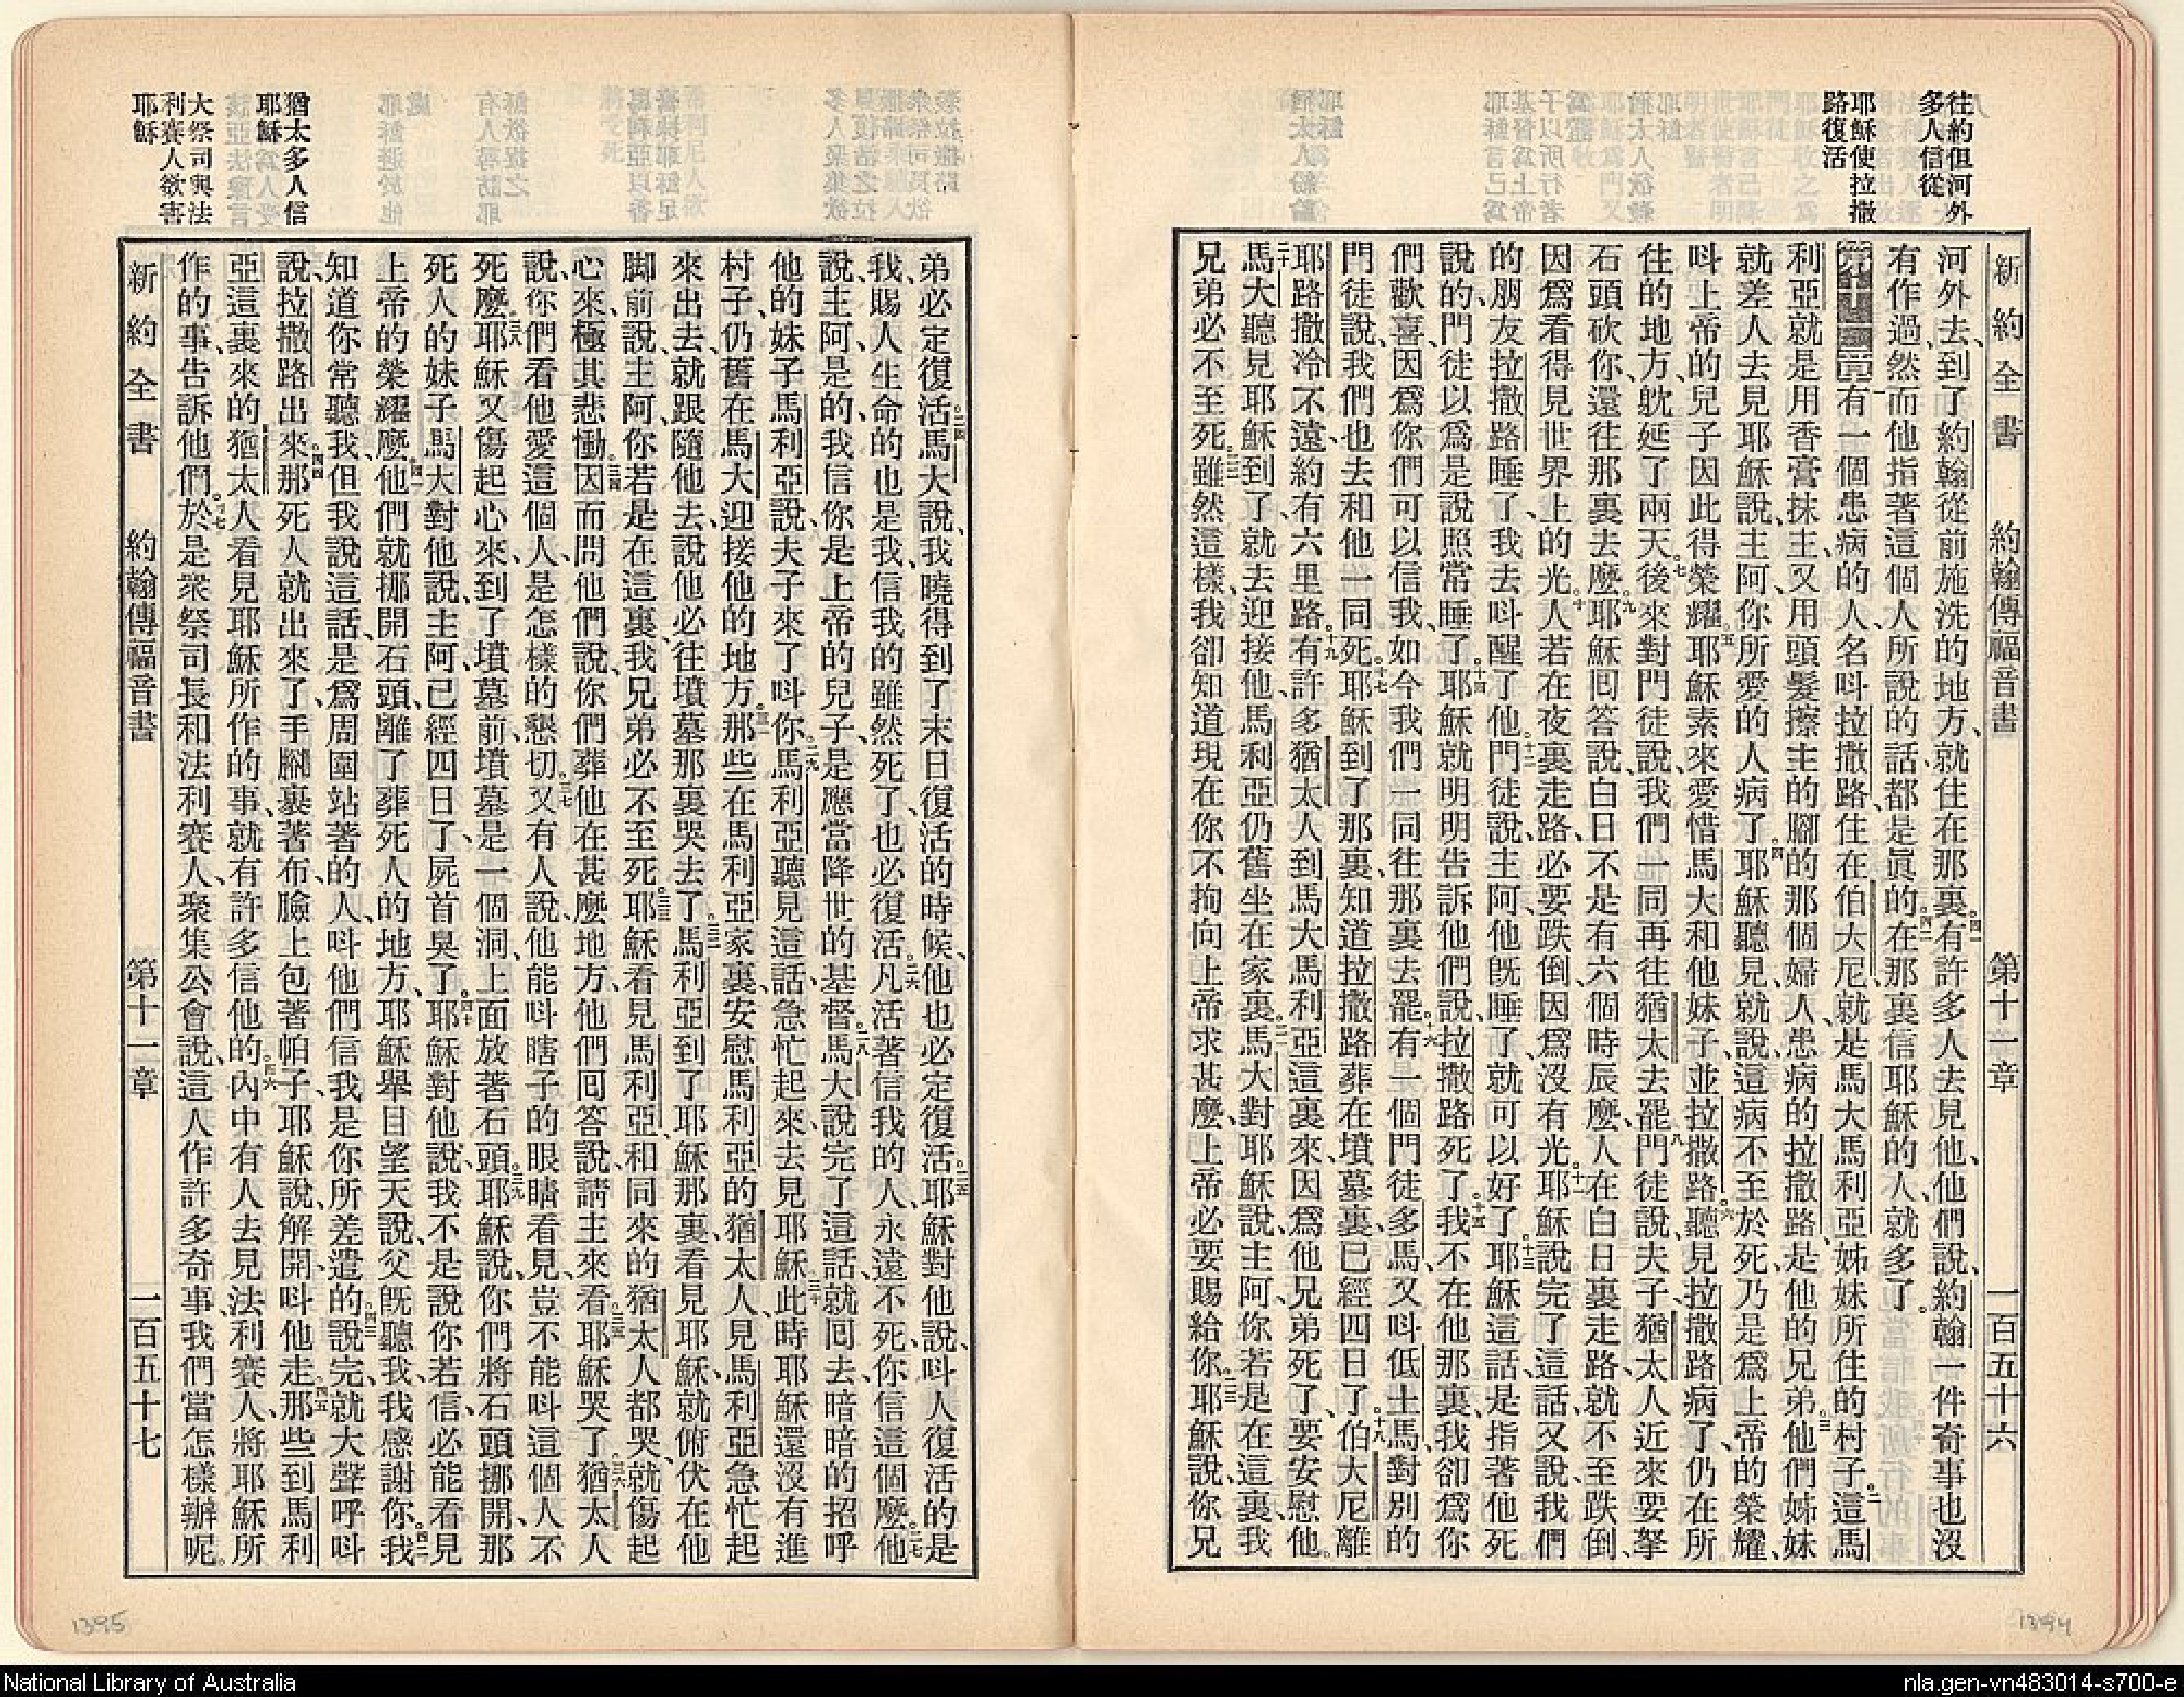 往約但河外
多人信從
耶穌使拉撒
路復活
新約全書 約翰傳福音書 第十一章 一百五十六
河外去、到了約翰從前施洗的地方、就住在那裏。四一有許多人去見他、他們說、約翰一件奇事也沒
有作過、然而他指著這個人所說的話、都是眞的。四二在那裏信耶穌的人、就多了。
第十一章一有一個患病的人、名呌拉撒路、住在伯大尼、就是馬大馬利亞姊妹所住的村子。二這馬
利亞就是用香膏抹主、又用頭髮擦主的腳的那個婦人、患病的拉撒路、是他的兄弟。三他們姊妹
就差人去見耶穌說、主阿、你所愛的人病了。四耶穌聽見、就說、這病不至於死、乃是爲上帝的榮耀、
呌上帝的兒子因此得榮耀。五耶穌素來愛惜馬大和他妹子、並拉撒路。六聽見拉撒路病了、仍在所
住的地方、躭延了兩天。七後來對門徒說、我們一同再往猶太去罷。八門徒說、夫子、猶太人近來要拏
石頭砍你、還往那裏去麼。九耶穌囘答說、白日不是有六個時辰麼、人在白日裏走路、就不至跌倒、
因爲看得見世界上的光。十人若在夜裏走路、必要跌倒、因爲沒有光。十一耶穌說完了這話、又說、我們
的朋友拉撒路睡了、我去呌醒了他。十二門徒說、主阿、他旣睡了、就可以好了。十三耶穌這話是指著他死
說的、門徒以爲是說照常睡了。十四耶穌就明明告訴他們說、拉撒路死了。十五我不在他那裏、我卻爲你
們歡喜、因爲你們可以信我、如今我們一同往那裏去罷。十六有一個門徒多馬、又呌低土馬、對別的
門徒說、我們也去和他一同死。十七耶穌到了那裏、知道拉撒路葬在墳墓裏、已經四日了。十八伯大尼離
耶路撒冷不遠、約有六里路。十九有許多猶太人到馬大馬利亞這裏來、因爲他兄弟死了、要安慰他。
二十馬大聽見耶穌到了、就去迎接他、馬利亞仍舊坐在家裏。二一馬大對耶穌說、主阿、你若是在這裏、我
兄弟必不至死。二二雖然這樣、我卻知道現在你不拘向上帝求甚麼、上帝必要賜給你。二三耶穌說、你兄
猶太多人信
耶穌
大祭司與法
利賽人欲害
耶穌
弟必定復活。二四馬大說、我曉得到了末日復活的時候、他也必定復活。二五耶穌對他說、呌人復活的是
我、賜人生命的也是我、信我的雖然死了、也必復活。二六凡活著信我的人、永遠不死、你信這個麼。二七他
說、主阿、是的、我信你是上帝的兒子、是應當降世的基督。二八馬大說完了這話、就囘去暗暗的招呼
他的妹子馬利亞說、夫子來了、呌你。二九馬利亞聽見這話、急忙起來、去見耶穌。三十此時耶穌還沒有進
村子、仍舊在馬大迎接他的地方。三一那些在馬利亞家裏、安慰馬利亞的猶太人、見馬利亞急忙起
來出去、就跟隨他去、說、他必往墳墓那裏哭去了。三二馬利亞到了耶穌那裏、看見耶穌、就俯伏在他
脚前說、主阿、你若是在這裏、我兄弟必不至死。三三耶穌看見馬利亞、和同來的猶太人都哭、就傷起
心來、極其悲慟。三四因而問他們說、你們葬他在甚麼地方、他們囘答說、請主來看。三五耶穌哭了。三六猶太人
說、你們看他愛這個人、是怎樣的懇切。三七又有人說、他能呌瞎子的眼睛看見、豈不能呌這個人不
死麼。三八耶穌又傷起心來、到了墳墓前、墳墓是一個洞、上面放著石頭。三九耶穌說、你們將石頭挪開、那
死人的妹子馬大對他說、主阿、已經四日了、屍首臭了。四十耶穌對他說、我不是說你若信、必能看見
上帝的榮耀麼。四一他們就挪開石頭、離了葬死人的地方、耶穌舉目望天說、父旣聽我、我感謝你。四二我
知道你常聽我、但我說這話、是爲周圍站著的人、呌他們信我是你所差遣的。四三說完、就大聲呼呌
說、拉撒路出來。四四那死人就出來了、手腳裹著布、臉上包著帕子、耶穌說、解開、呌他走。四五那些到馬利
亞這裏來的猶太人、看見耶穌所作的事、就有許多信他的。四六內中有人去見法利賽人、將耶穌所
作的事、告訴他們。四七於是衆祭司長和法利賽人、聚集公會說、這人作許多奇事、我們當怎樣辦呢。
新約全書 約翰傳福音書 第十一章 一百五十七
1395
1394
National Library of Australia
nla.gen-vn483014-s700-e